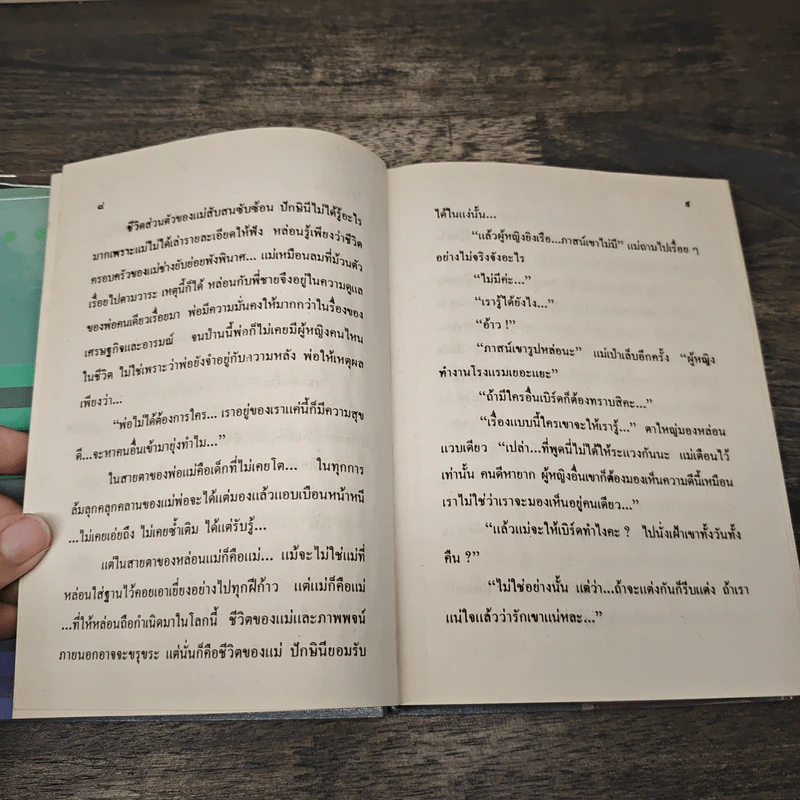 ๘
ชีวิตส่วนตัวของแม่สับสนซับซ้อน ปักษินีไม่ได้รู้อะไร
มากเพราะแม่ไม่ได้เล่ารายละเอียดให้ฟัง หล่อนรู้เพียงว่าชีวิต
ครอบครัวของแม่ช่างยับย่อยพังพินาศ... แม่เหมือนลมที่ม้วนตัว
เรื่อยไปตามวาระ เหตุนี้ก็ได้ หล่อนกับพี่ชายจึงอยู่ในความดูแล
ของพ่อคนเดียวเรื่อยมา พ่อมีความมั่นคงให้มากกว่าในเรื่องของ
เศรษฐกิจและอารมณ์ จนป่านนี้พ่อก็ไม่เคยมีผู้หญิงคนไหน
ในชีวิต ไม่ใช่เพราะว่าพ่อยังจำอยู่กับความหลัง พ่อให้เหตุผล
เพียงว่า...
“พ่อไม่ได้ต้องการใคร... เราอยู่ของเราแค่นี้ก็มีความสุข
ดี...จะหาคนอื่นเข้ามายุ่งทำไม...”
ในสายตาของพ่อแม่คือเด็กที่ไม่เคยโต... ในทุกการ
ล้มลุกคลุกคลานของแม่พ่อจะได้แต่มองแล้วแอบเบือนหน้าหนี
...ไม่เคยเอ่ยถึง ไม่เคยซ้ำเติม ได้แต่รับรู้...
แต่ในสายตาของหล่อนแม่ก็คือแม่... แม้จะไม่ใช่แม่ที่
หล่อนใส่ฐานไว้คอยเอาเยี่ยงอย่างไปทุกฝีก้าว แต่แม่ก็คือแม่
...ที่ให้หล่อนถือกำเนิดมาในโลกนี้ ชีวิตของแม่และภาพพจน์
ภายนอกอาจจะขรุขระ แต่นั่นก็คือชีวิตของแม่ ปักษินียอมรับ
๙
ได้ในแง่นั้น...
“แล้วผู้หญิงยิงเรือ...ภาสน์เขาไม่มี” แม่ถามไปเรื่อย ๆ
อย่างไม่จริงจังอะไร
“ไม่มีค่ะ...”
“เรารู้ได้ยังไง...”
“อ้าว !”
“ภาสน์เขารูปหล่อนะ” แม่เป่าเล็บอีกครั้ง “ผู้หญิง
ทำงานโรงแรมเยอะแยะ”
“ถ้ามีใครอื่นเบิร์ดก็ต้องทราบสิคะ...”
“เรื่องแบบนี้ใครเขาจะให้เรารู้...” ตาใหญ่มองหล่อน
แวบเดียว “เปล่า...ที่พูดนี่ไม่ได้ให้ระแวงกันนะ แม่เตือนไว้
เท่านั้น คนดีหายาก ผู้หญิงอื่นเขาก็ต้องมองเห็นความดีนี้เหมือน
เราไม่ใช่ว่าเราจะมองเห็นอยู่คนเดียว...”
“แล้วแม่จะให้เบิร์ดทำไงคะ ? ไปนั่งเฝ้าเขาทั้งวันทั้ง
คืน ?”
“ไม่ใช่อย่างนั้น แต่ว่า...ถ้าจะแต่งกันก็รีบแต่ง ถ้าเรา
แน่ใจแล้วว่ารักเขาแน่หละ...”